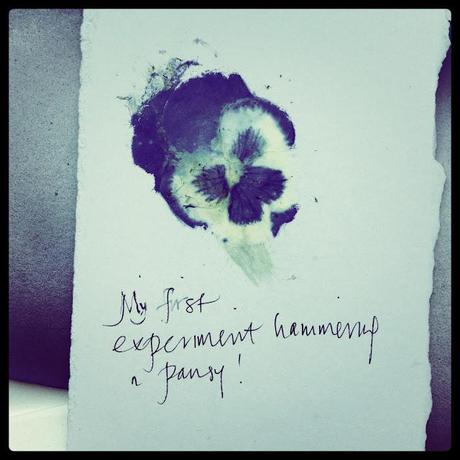 My first
experiment hammering
a pansy!